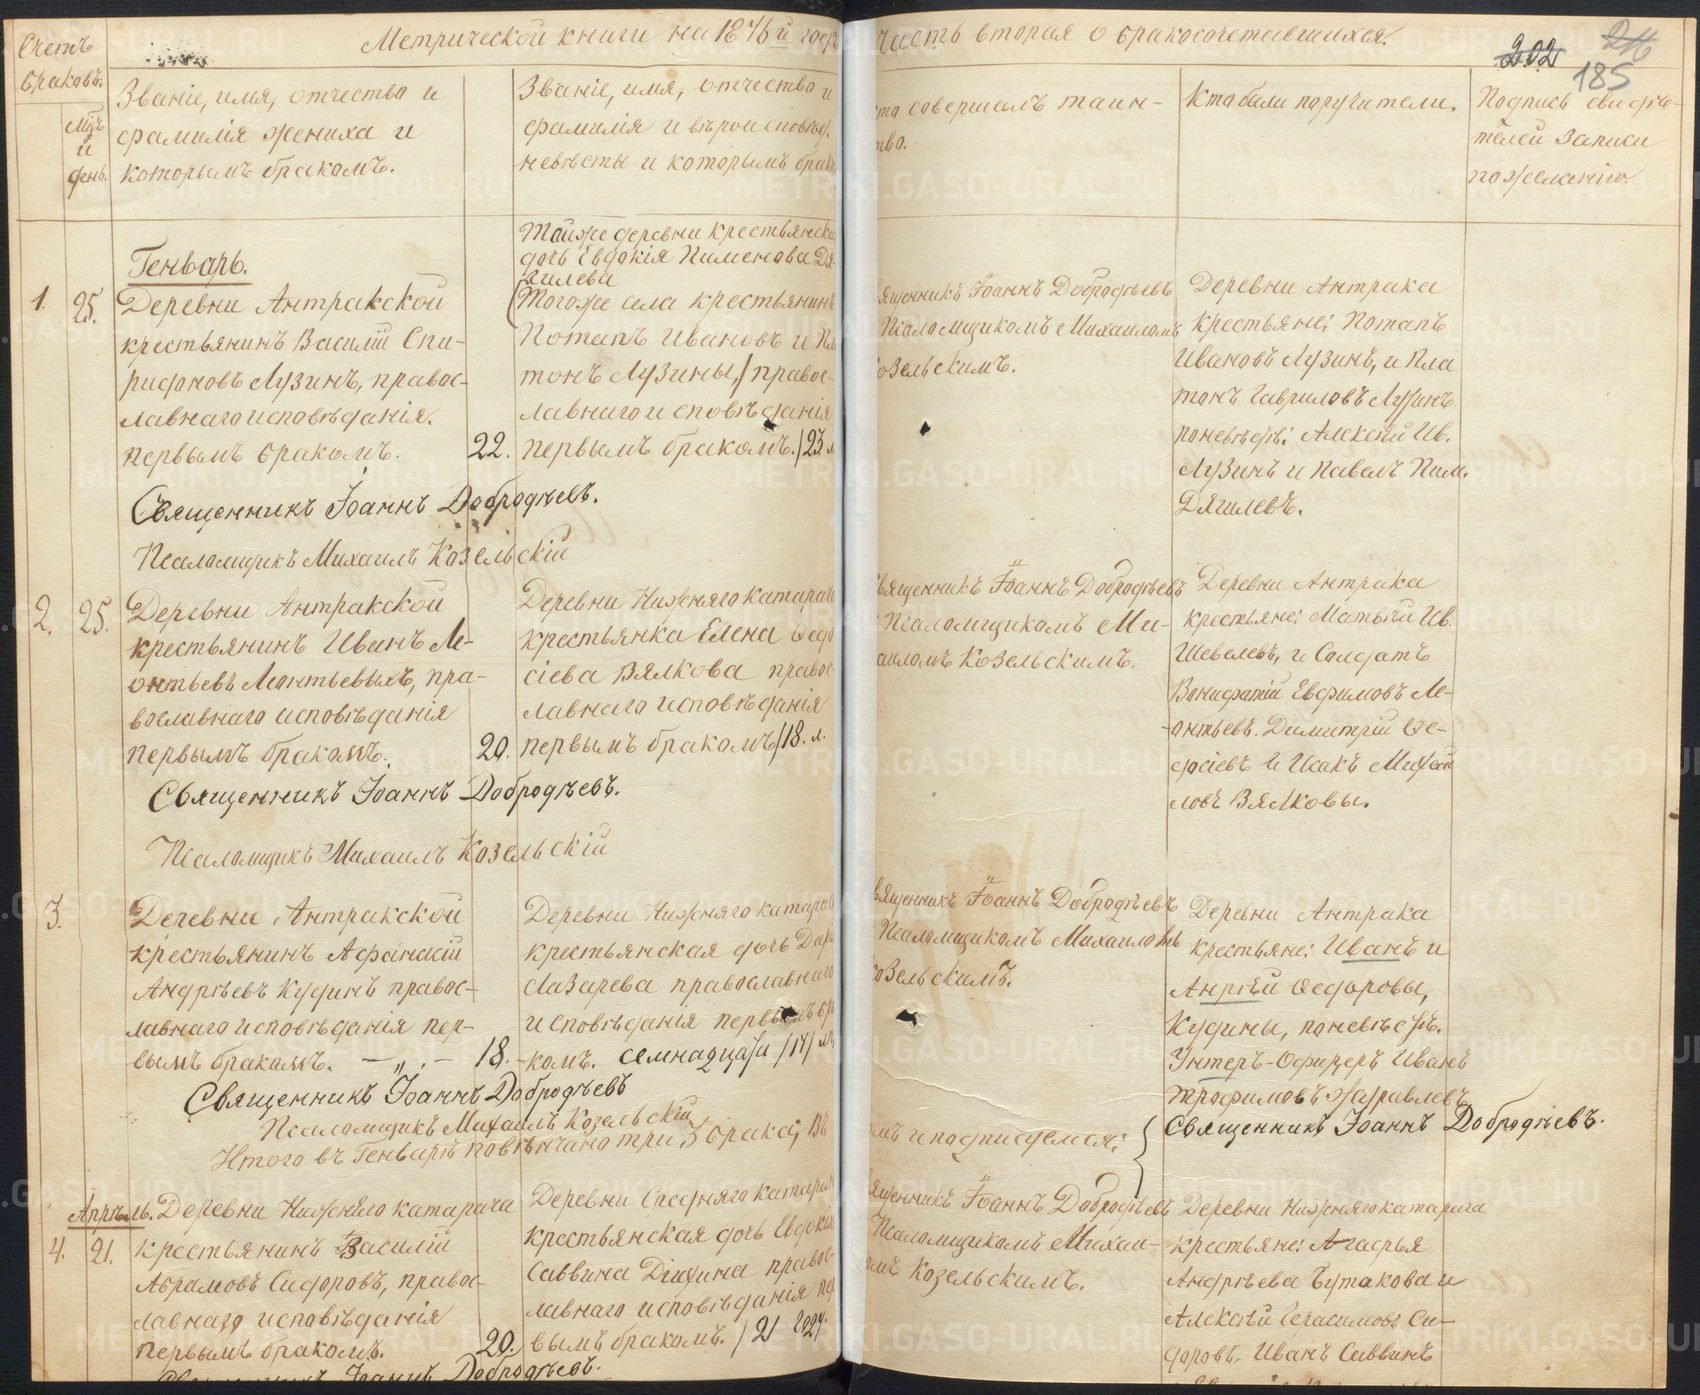 Метрической книги на 1876й годъ
Часть вторая о бракосочетавшихся.
202
185
Счетъ
браковъ.
мцъ
и
день.
Званіе, имя, отчество и
фамилія жениха и
которымъ бракомъ.
Званіе, имя, отчество и
фамилія и вѣроисповѣд.
невѣсты и которымъ брако
то совершалъ таин-
тво.
Кто были поручители.
Подпись свидѣ-
телей записи
по желанію.
Генварь.
1. 25.
Деревни Антракской
крестьянинъ Василій Спи-
ридоновъ Лузинъ, правос-
лавнаго исповѣданія.
первымъ бракомъ. 22.
Тойже деревни крестьянска
дочь Евдокія Пименова Дя-
гилева
(Тогоже села крестьянинъ
Потапъ Ивановъ и Пла
тонъ Лузины,) правос-
лавнаго исповѣданія
первымъ бракомъ. /23. л
священникъ Іоаннъ Добродѣевъ
Псаломщикомъ Михаиломъ
Козельскимъ.
Деревни Антрака
крестьяне: Потапъ
Ивановъ Лузинъ, и Пла
тонъ Гавриловъ Лузинъ
по невѣстѣ: Алексій Ив.
Лузинъ и Павелъ Пим.
Дягилевъ.
Священникъ Іоаннъ Добродѣевъ.
Псаломщикъ Михаилъ Козельскій
2. 25.
Деревни Антракской
крестьянинъ Иванъ Ле-
онтьевъ Леонтьевыхъ, пра-
вославнаго исповѣданія
первымъ бракомъ. 20.
Деревни Нижняго Катарача
крестьянка Елена Ѳедо
сіева Вялкова правос-
лавнаго исповѣданія
первымъ бракомъ /18. л.
священникъ Іоаннъ Добродѣевъ
Псаломщикомъ Ми-
хаиломъ Козельскимъ.
Деревни Антрака
крестьяне: Матвѣй Ив.
Шевелевъ, и Солдатъ
Вонифатій Евфимовъ Ле-
онтьевъ. Димитрій Ѳе-
досіевъ и Исакъ Михай
ловъ Вялковы.
Священникъ Іоаннъ Добродѣевъ.
Псаломщикъ Михаилъ Козельскій
3.
Деревни Антракской
крестьянинъ Афанасій
Андрѣевъ Кудинъ правос-
лавнаго исповѣданія пер-
вымъ бракомъ. — „ . — 18.
Деревни Нижняго Катарач
крестьянская дочь Дарь
Лазарева православнаго
исповѣданія первымъ бра
комъ. семнадцати /17/ лѣ
священникъ Іоаннъ Добродѣевъ
Псаломщикомъ Михаиломъ
Козельскимъ.
Деревни Антрака
крестьяне: Иванъ и
Андрѣй Ѳедоровы,
Кудины, по невѣстѣ.
Унтеръ-Офицеръ Иванъ
Трофимовъ Журавлевъ
Священникъ Іоаннъ Добродѣевъ
Псаломщикъ Михаилъ Козельскій
Итого въ Генварѣ повѣнчано три 3 брака; въ
чемъ и подписуемся:
Священникъ Іоаннъ Добродѣевъ.
Апрѣль.
4. 21.
Деревни Нижняго Катарача
крестьянинъ Василій
Абрамовъ Сидоровъ, правос-
лавнаго исповѣданія
первымъ бракомъ. 20.
Деревни Средняго Катарач
крестьянская дочь Евдокія
Саввина правос-
лавнаго исповѣданія пер
вымъ бракомъ. /21 годъ
священникъ Іоаннъ Добродѣевъ
Псаломщикомъ Михаи-
ломъ Козельскимъ.
Деревни Нижняго Катарача
крестьяне: Агафья
Андрѣева Бутакова и
Алексѣй Герасимовъ Си-
доровъ. Иванъ Саввинъ
Священникъ Іоаннъ Добродѣевъ.